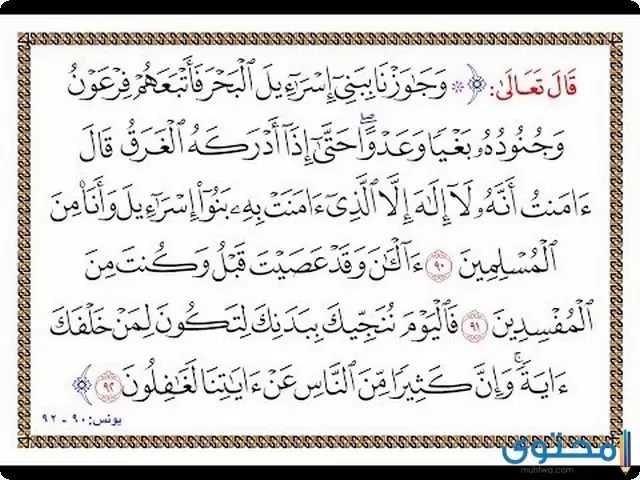 قَالَ تَعَالَىٰ: ﴿ ۞ وَجَٰوَزْنَا بِبَنِىٓ إِسْرَٰٓءِيلَ ٱلْبَحْرَ فَأَتْبَعَهُمْ فِرْعَوْنُ
وَجُنُودُهُۥ بَغْيًا وَعَدْوًا ۖ حَتَّىٰٓ إِذَآ أَدْرَكَهُ ٱلْغَرَقُ قَالَ
ءَامَنتُ أَنَّهُۥ لَآ إِلَٰهَ إِلَّا ٱلَّذِىٓ ءَامَنَتْ بِهِۦ بَنُوٓا۟ إِسْرَٰٓءِيلَ وَأَنَا۠ مِنَ
ٱلْمُسْلِمِينَ ٩٠ ءَآلْـَٰٔنَ وَقَدْ عَصَيْتَ قَبْلُ وَكُنتَ مِنَ
ٱلْمُفْسِدِينَ ٩١ فَٱلْيَوْمَ نُنَجِّيكَ بِبَدَنِكَ لِتَكُونَ لِمَنْ خَلْفَكَ
ءَايَةً ۚ وَإِنَّ كَثِيرًا مِّنَ ٱلنَّاسِ عَنْ ءَايَٰتِنَا لَغَٰفِلُونَ ٩٢ ﴾
يونس: ٩٠ - ٩٢
محتوى
muhtwa.com